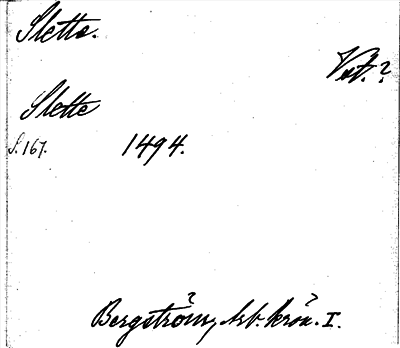 Slette.
Vist. ?
Slette
S. 167. 1494.
Bergström, Arb. krön. I.